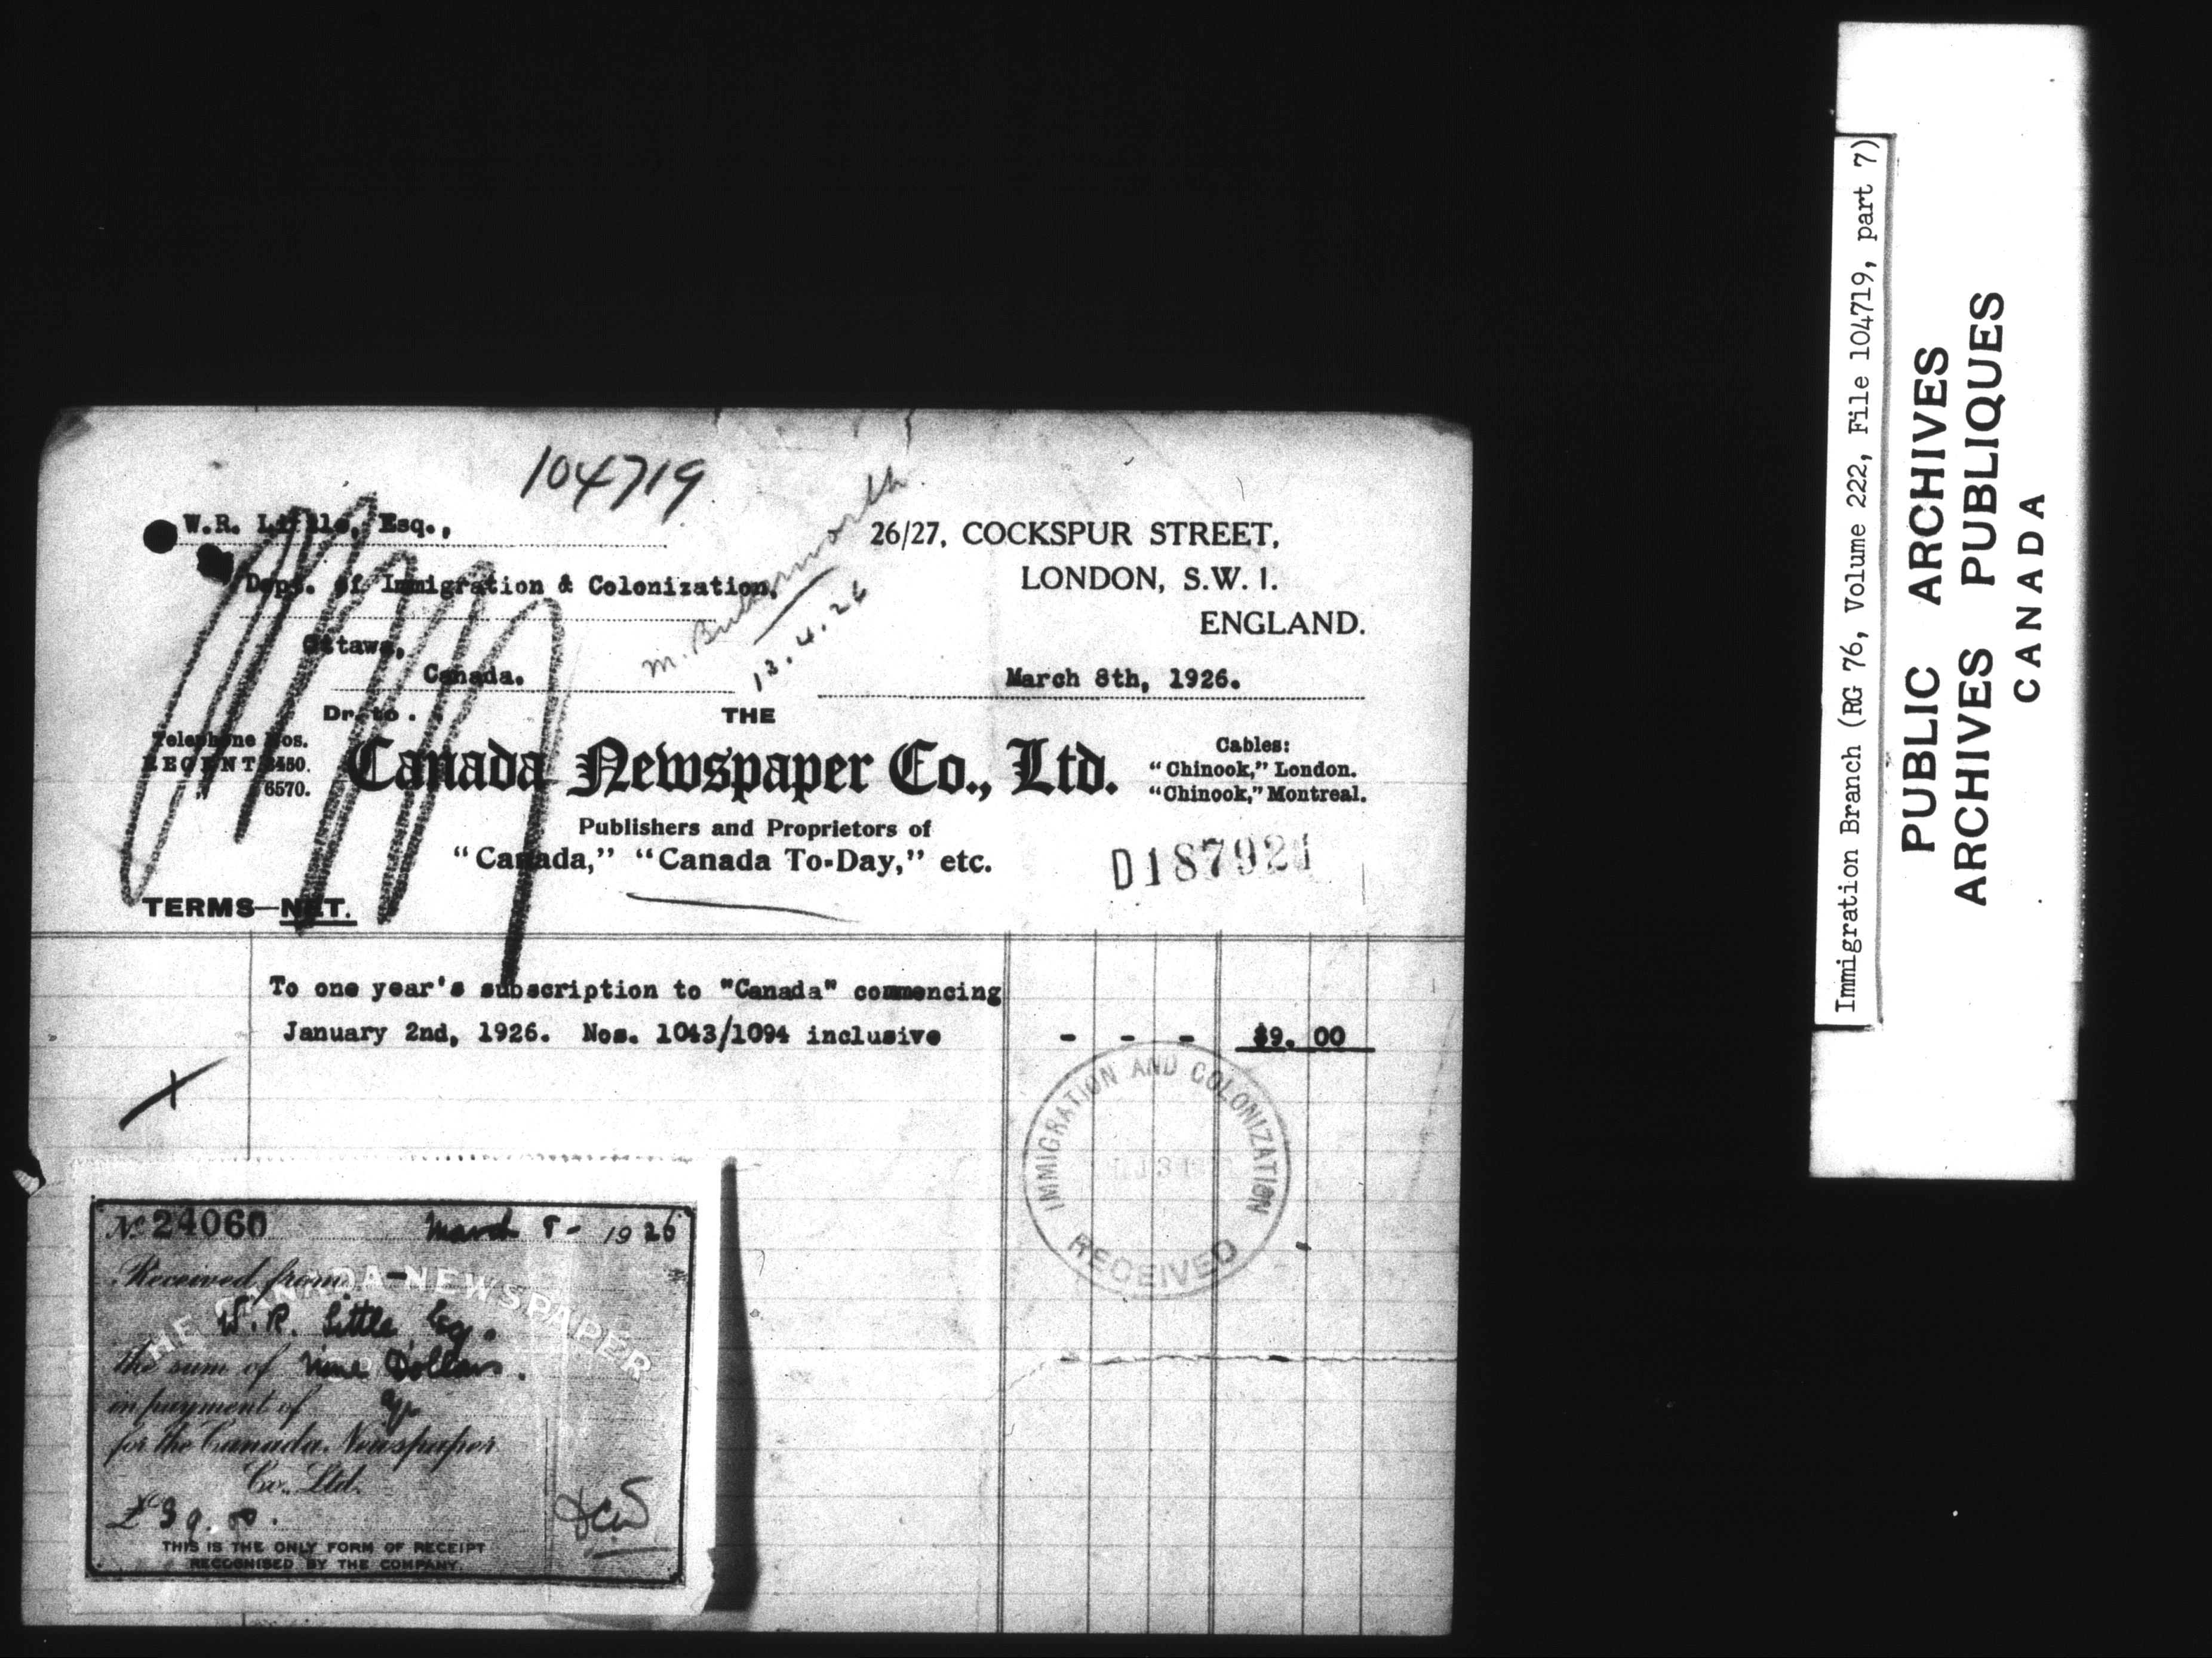 104719
W.R. Little, Esq.,
Dept. of Immigration & Colonization,
Ottawa,
Canada.
M.
13.4.26
26/27, COCKSPUR STREET,
LONDON, S.W. 1.
ENGLAND.
March 8th, 1926.
Dr. to
THE
Telephone Nos.
REGENT 2450.
" 6570.
Canada Newspaper Co., Ltd.
Cables:
"Chinook," London.
"Chinook," Montreal.
Publishers and Proprietors of
"Canada," "Canada To-Day," etc.
D187921
TERMS—NET.
To one year's subscription to "Canada" commencing
January 2nd, 1926. Nos. 1043/1094 inclusive - - - $9.00
IMMIGRATION AND COLONIZATION
RECEIVED
No. 24060 March 8- 1926
Received from
THE CANADA NEWSPAPER
W.R. Little Esq.
the sum of Nine Dollars.
in payment of
for the Canada Newspaper
Co., Ltd.
£ $9.00.
THIS IS THE ONLY FORM OF RECEIPT
RECOGNISED BY THE COMPANY.
Immigration Branch (RG 76, Volume 222, File 104719, part 7)
PUBLIC ARCHIVES
ARCHIVES PUBLIQUES
CANADA